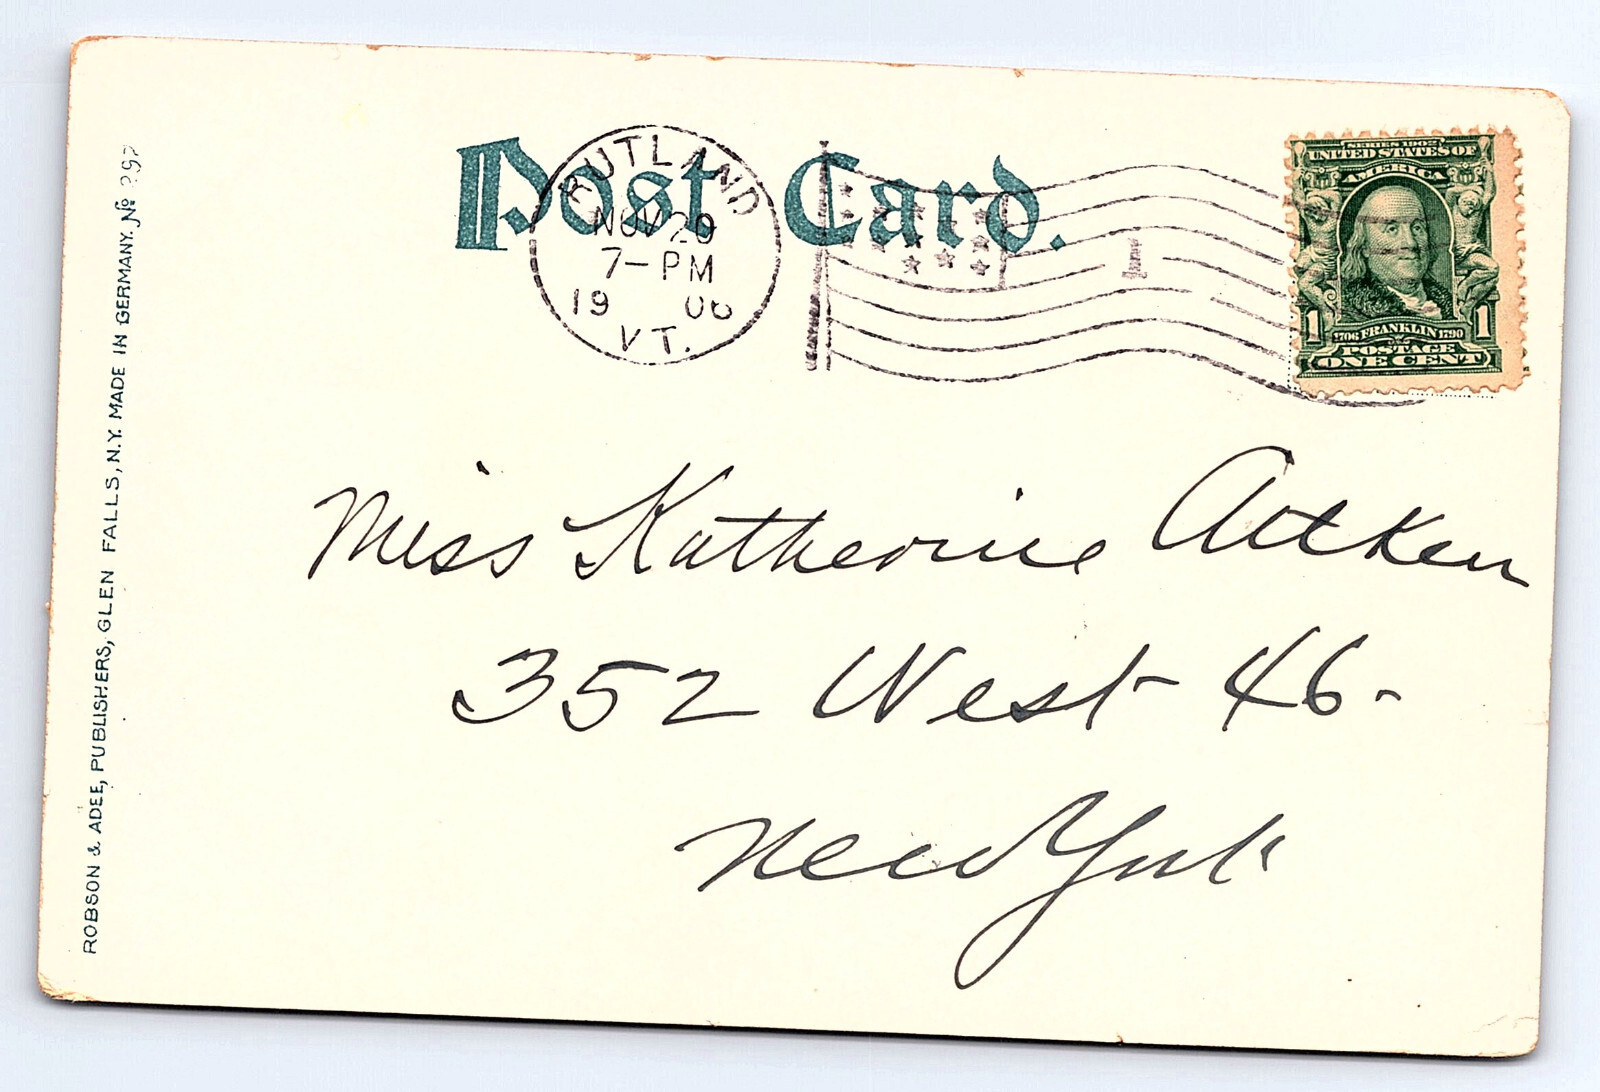 Post Card.
RUTLAND
NOV 20
7-PM
19 06
VT.
1
SERIES 1902
UNITED STATES OF
AMERICA
1 1706 FRANKLIN 1790 1
POSTAGE
ONE CENT
Miss Katherine Aitken
352 West 46-
New York
ROBSON & ADEE, PUBLISHERS, GLEN FALLS, N.Y. MADE IN GERMANY. No